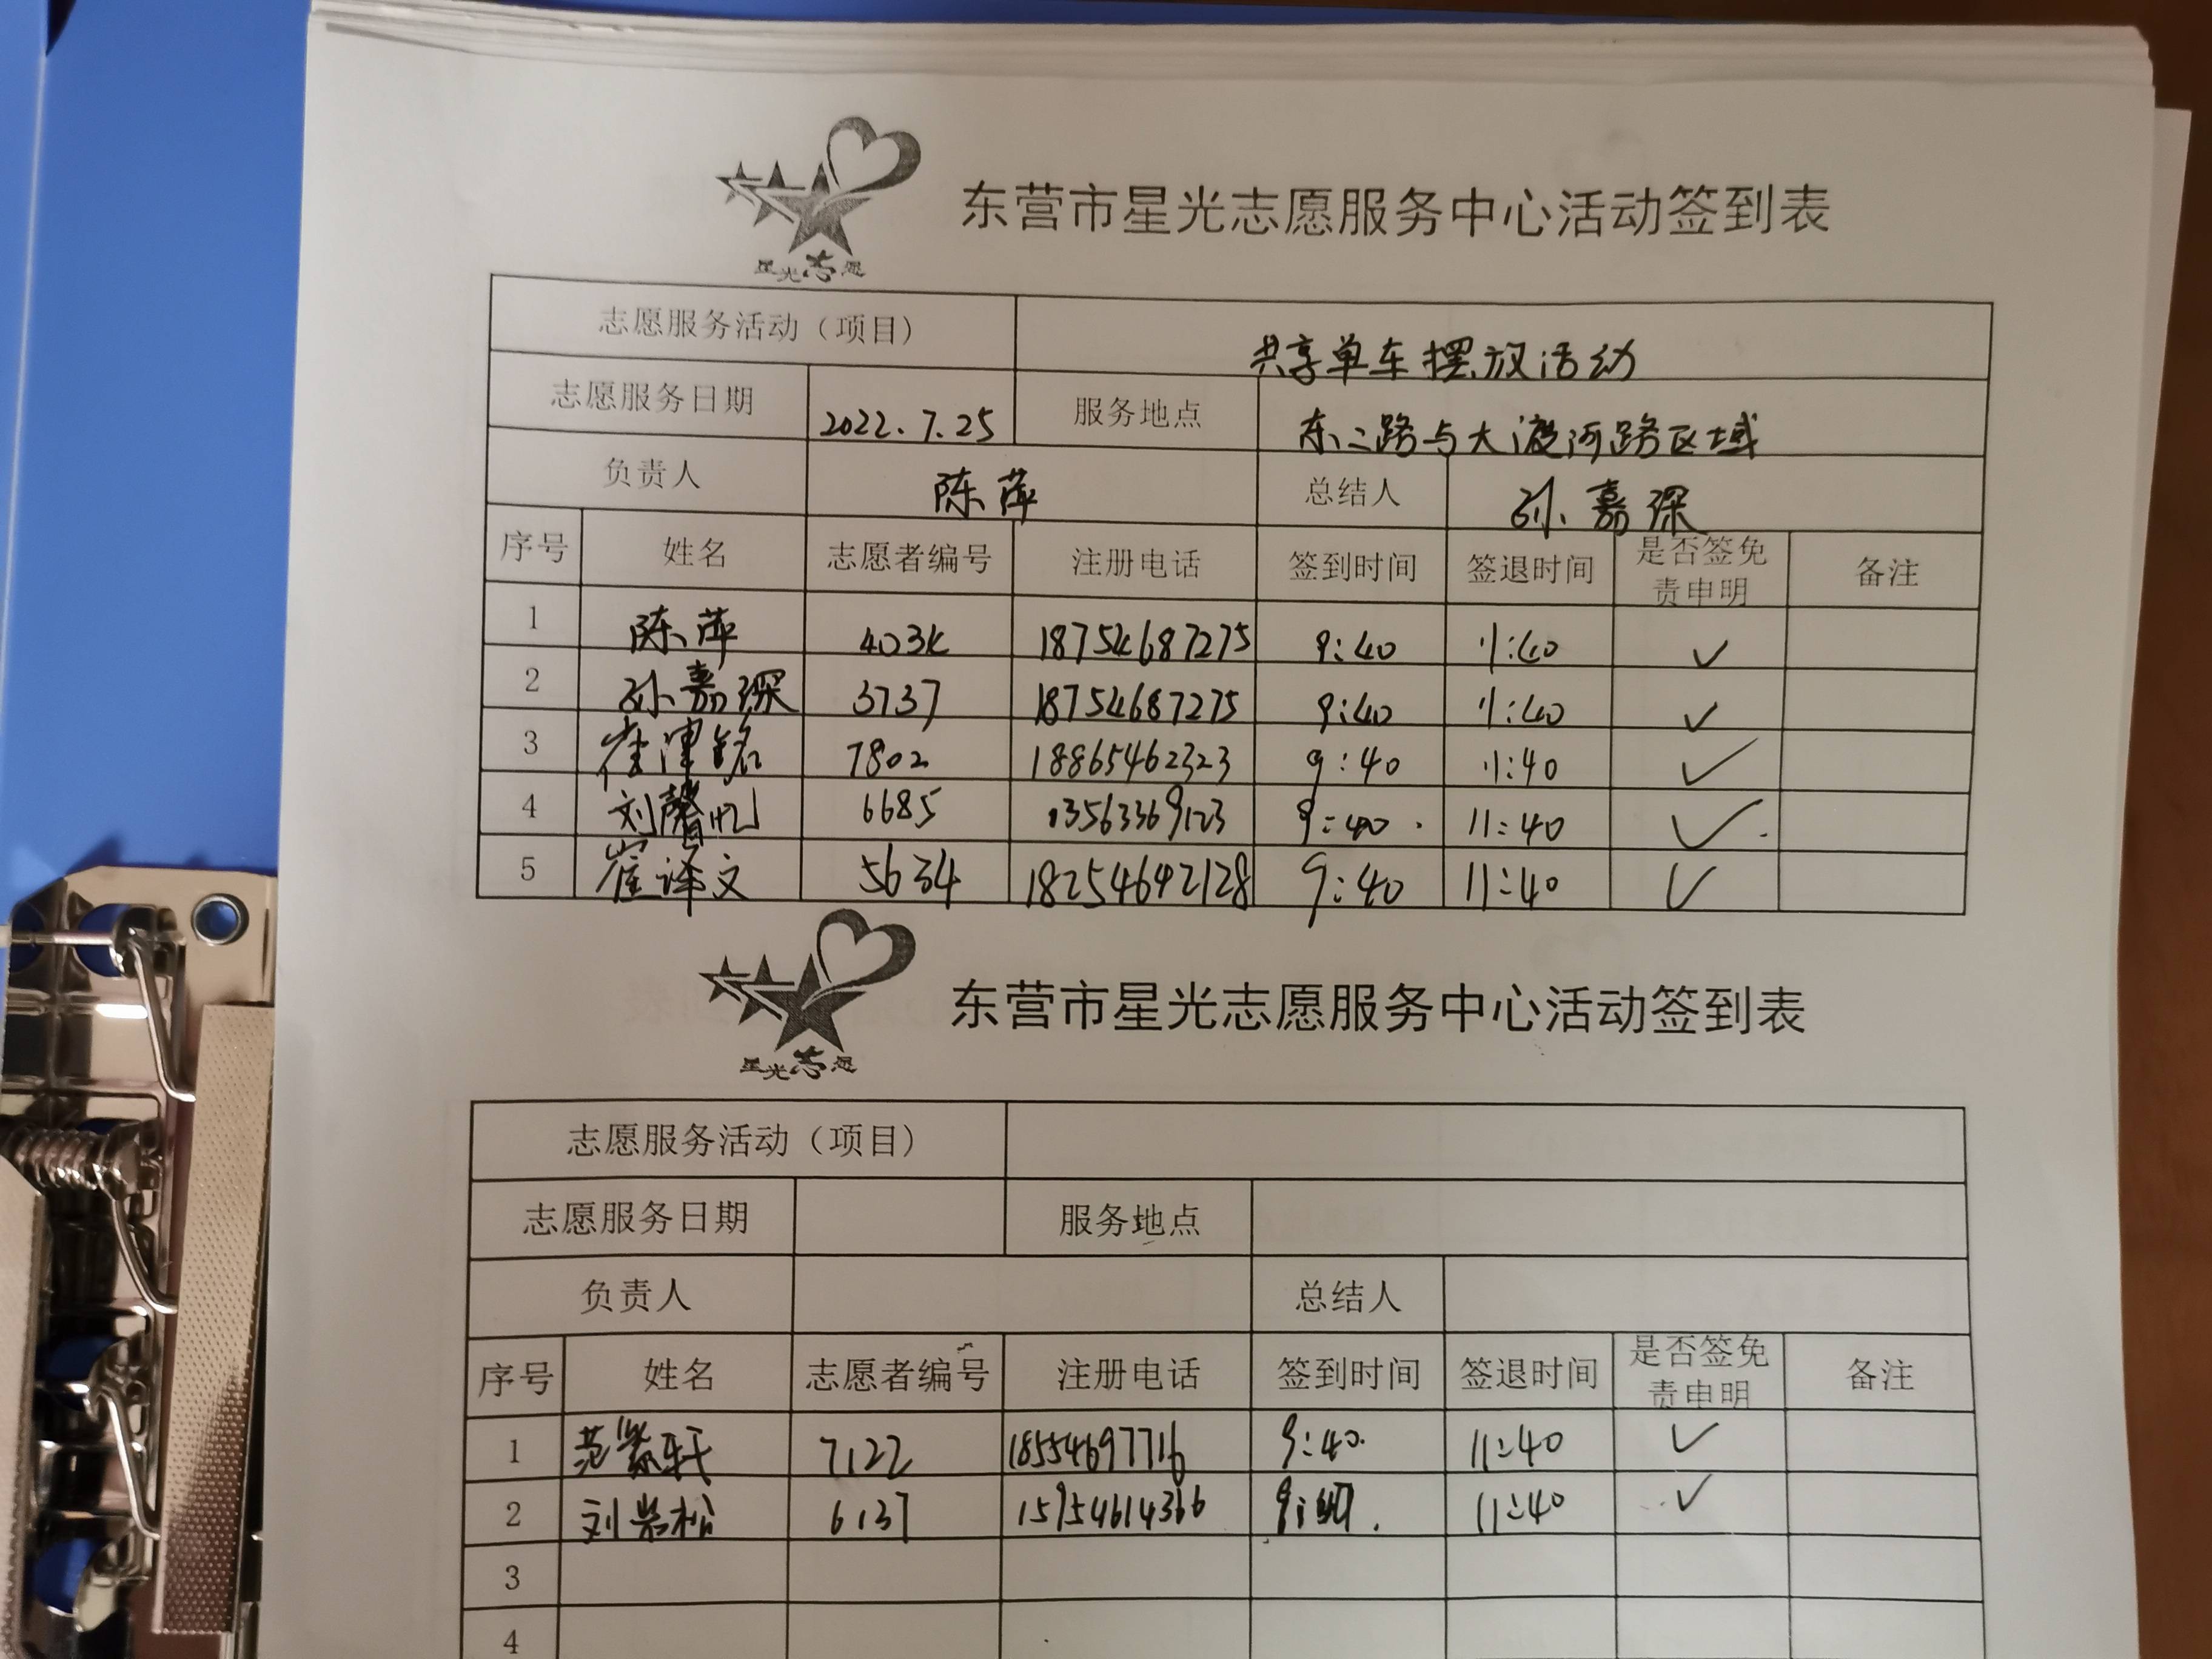 星光志愿
东营市星光志愿服务中心活动签到表
志愿服务活动（项目） 共享单车摆放活动
志愿服务日期 2022.7.25 服务地点 东二路与大渡河路区域
负责人 陈萍 总结人 孙嘉琛
序号 姓名 志愿者编号 注册电话 签到时间 签退时间 是否签免责申明 备注
1 陈萍 4034 18754687275 9:40 11:40 ✓
2 孙嘉琛 3737 18754687275 9:40 11:40 ✓
3 崔津铭 7802 18865462323 9:40 11:40 ✓
4 刘馨忆 6685 13563369123 9:40 11:40 ✓
5 崔译文 5634 18254642128 9:40 11:40 ✓
星光志愿
东营市星光志愿服务中心活动签到表
志愿服务活动（项目）
志愿服务日期 服务地点
负责人 总结人
序号 姓名 志愿者编号 注册电话 签到时间 签退时间 是否签免责申明 备注
1 范紫轩 7122 18554697716 9:40 11:40 ✓
2 刘 松 6137 15954614366 11:40 ✓
3
4